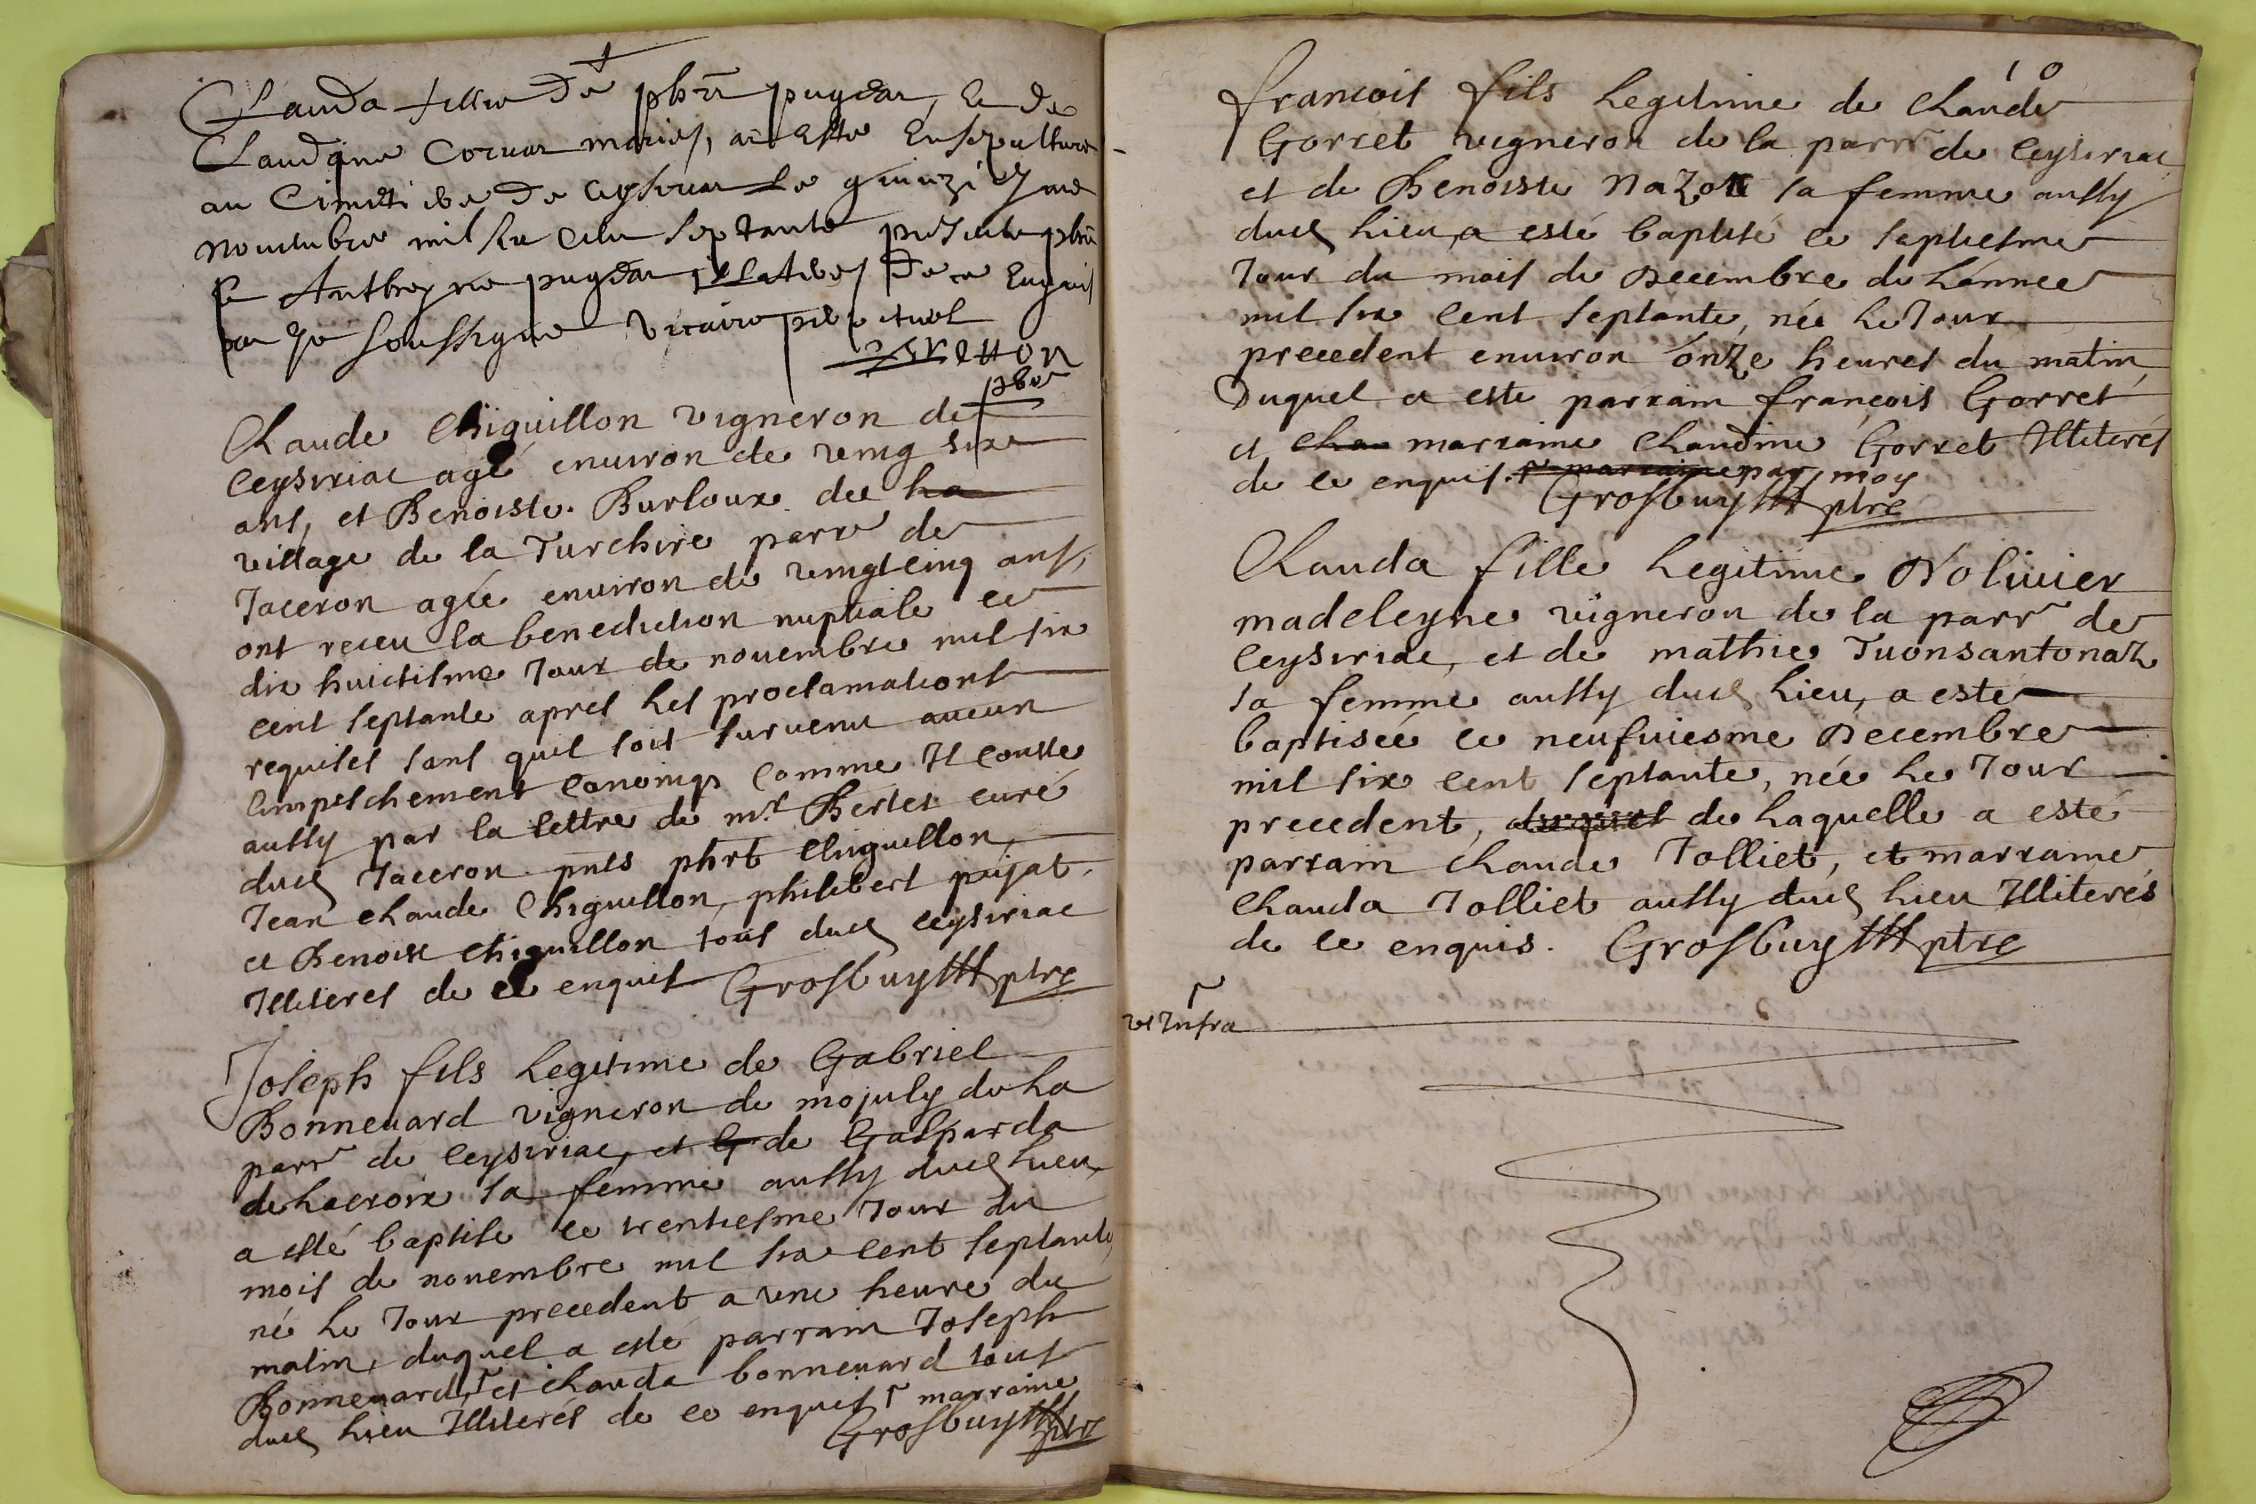 Clauda fillie de phrt pugeat, et de
Claudine Coruat mariés, at Esté Ensepulturé
au Cimitiere de ceyseriat Le quinziesme
nouembre mil six cent septante presents phrt
et Anthoyne pugeat, illiteres de ce Enquis
par je soussigne vicaire perpetuel
pbre
Claude Chiguillon vigneron de
Ceysiriac agé enuiron de uing six
ans, et Benoiste Burloux du ha
village de la Turchire parr de
Jaceron agée enuiron de uingtcinq ans,
ont receu la benediction nuptiale ce
dix huictisme Jour de nouembre mil six
cent septante apres les proclamations
requises sans quil soit suruenu aucun
empeschement canoinq Comme Il conste
aussy par la lettre de mr Berlet curé
dud Jaceron pnts phrt Chiguillon,
Jean claude Chiguillon, philibert pujat,
et Benoist Chiguillon tous dud ceysiriac
Illiteres de ce enquis Grosbuy ptre
Joseph fils legitime de Gabriel
Bonneuard vigneron de mojuly de la
parr de Ceysiriac, et G de Gasparda
de Lacroix sa femme aussy dud lieu,
a esté baptise ce trentiesme Jour du
mois de nouembre mil six cent septante,
né le Jour precedent a une heure du
matin, duquel a esté parrain Joseph
Bonneuard, et clauda bonneuard tous
dud lieu Illiterés de ce enquis marraine
Grosbuy ptre
10
francois fils legitime de claude
Gorret vigneron de la parr de Ceysiriac
et de Benoiste Nazot sa femme aussy
dud lieu, a esté baptisé ce septiesme
Jour du mois de Decembre de lannee
mil six cent septante, née le Jour
precedent enuiron onze heures du matin,
Duquel a este parrain francois Gorret
et, clau marraine Claudine Gorret Illiterés
de ce enquis. et marraine par moy
Grosbuy ptre
Clauda fille legitime Dolivier
madeleyne vigneron de la parr de
Ceysiriac, et de mathie Tuonsantonaz
sa femme aussy dud lieu, a este
baptisée ce neufuiesme Decembre
mil six cent septante, née le Jour
precedent, duquel de laquelle a esté
parrain claude Jolliet, et marraine
Clauda Jolliet aussy dud lieu Illiterés
de ce enquis. Grosbuy ptre
vt Infra